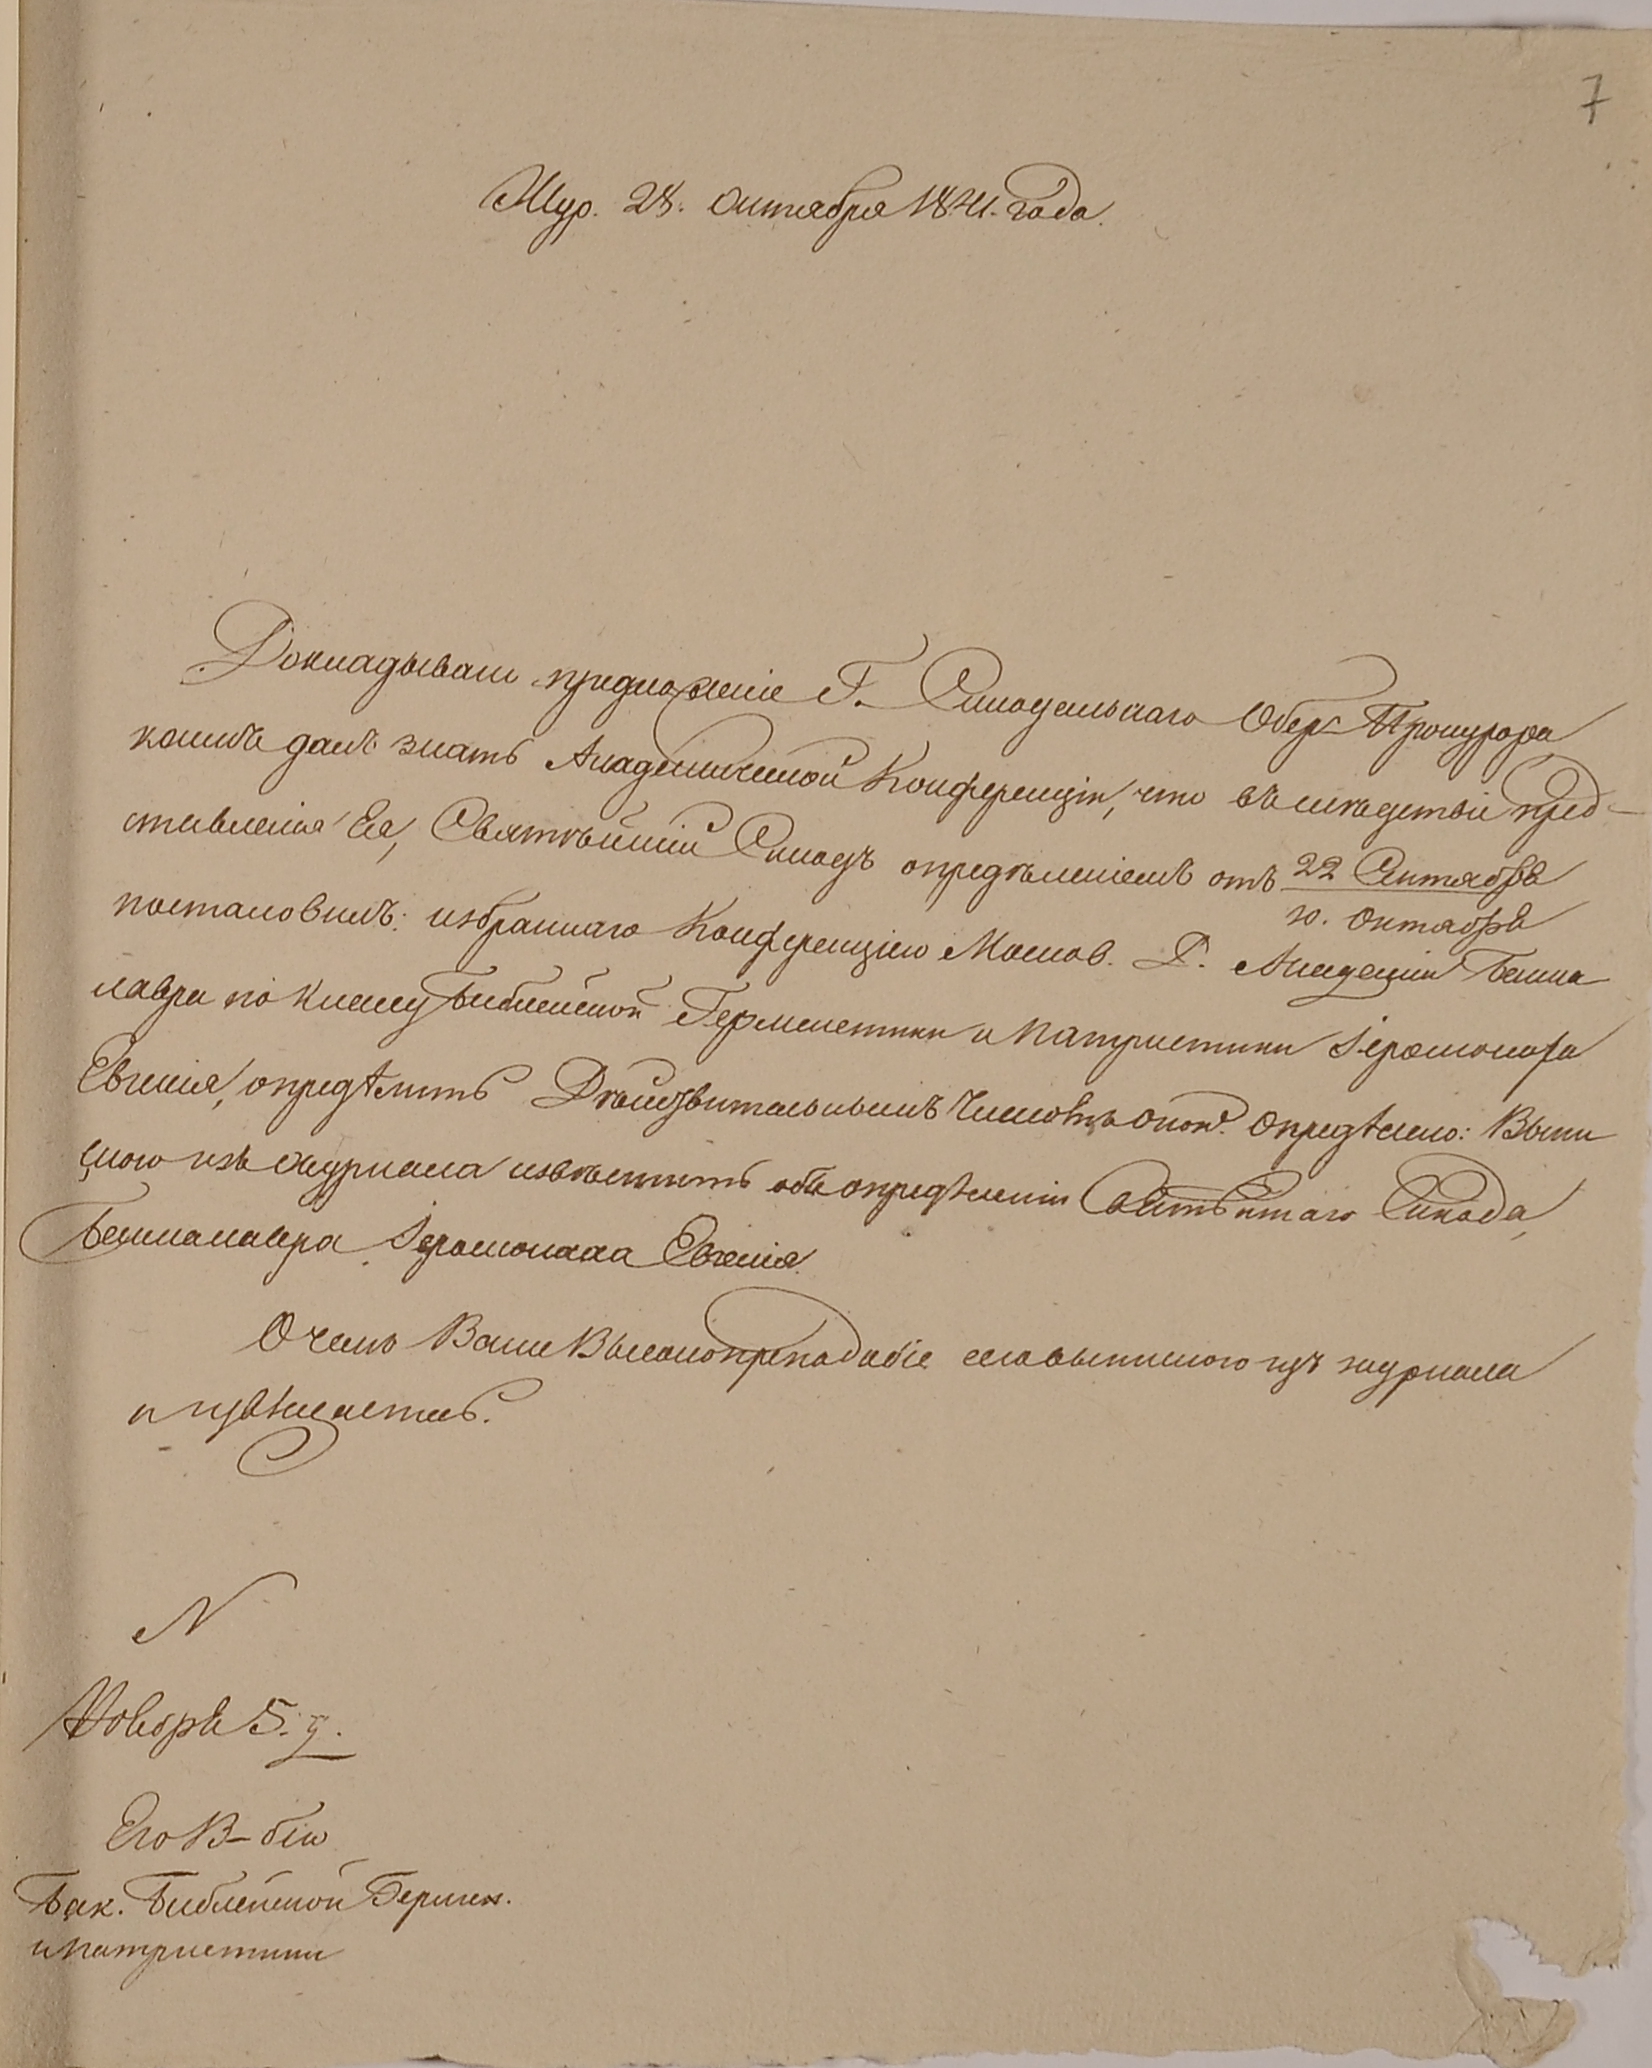 7
Жур. 28. Октября 1841. года.
Докладывали предложеніе Г. Синодальнаго Обер-Прокурора
коимъ далъ знать Академической Конференціи, что въ слѣдствіе пред-
ставленія Ея, Святѣйшій Синодъ опредѣленіемъ отъ 22 Сентября
10. Октября
постановилъ: избраннаго Конференціею Москов. Д. Академіи Бакка
лавра по классу Библейской Герменевтики и Патристики Іеромонаха
Евгенія, опредѣлить Дѣйствительнымъ Членомъ оной. Опредѣлено: Выпи
скою изъ журнала извѣстить объ опредѣленіи Святѣйшаго Синода,
Баккалавра Іеромонаха Евгенія.
О чемъ Ваше Высокопреподобіе сею выпискою изъ журнала
и извѣщаетесь.
N
Ноября 5. д.
Его В-бію
Бак. Библейской Гермен.
и Патристики